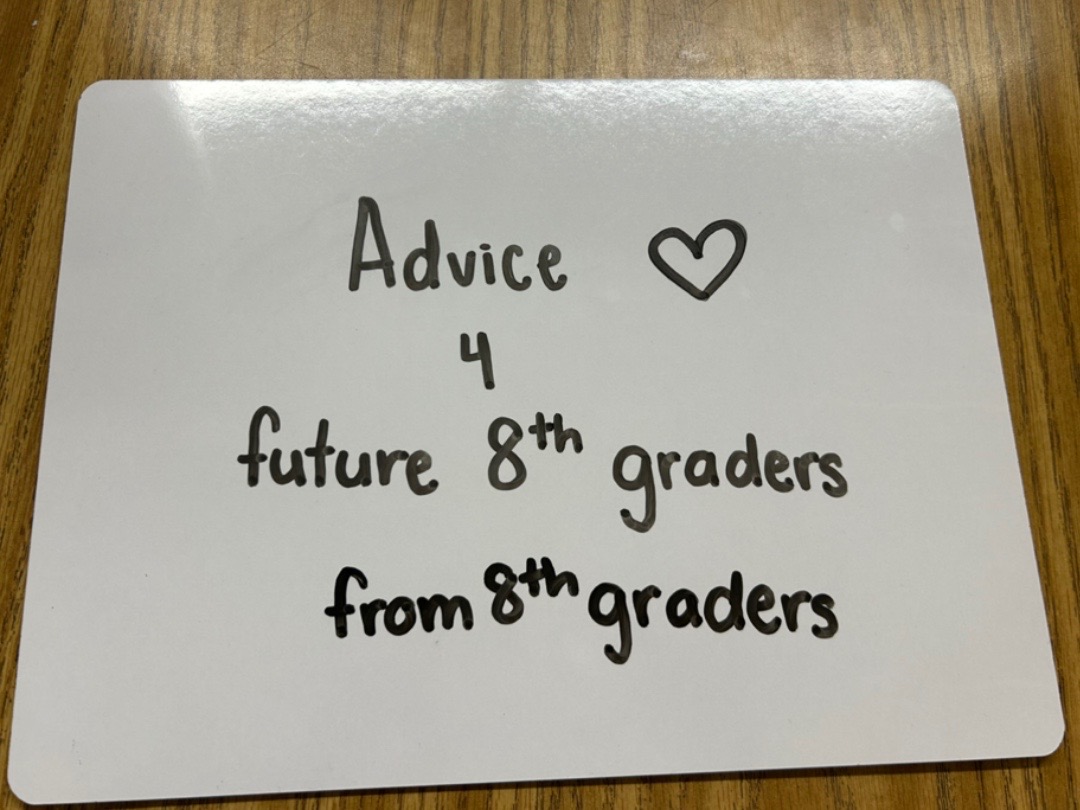 Advice
4
future 8th graders
from 8th graders